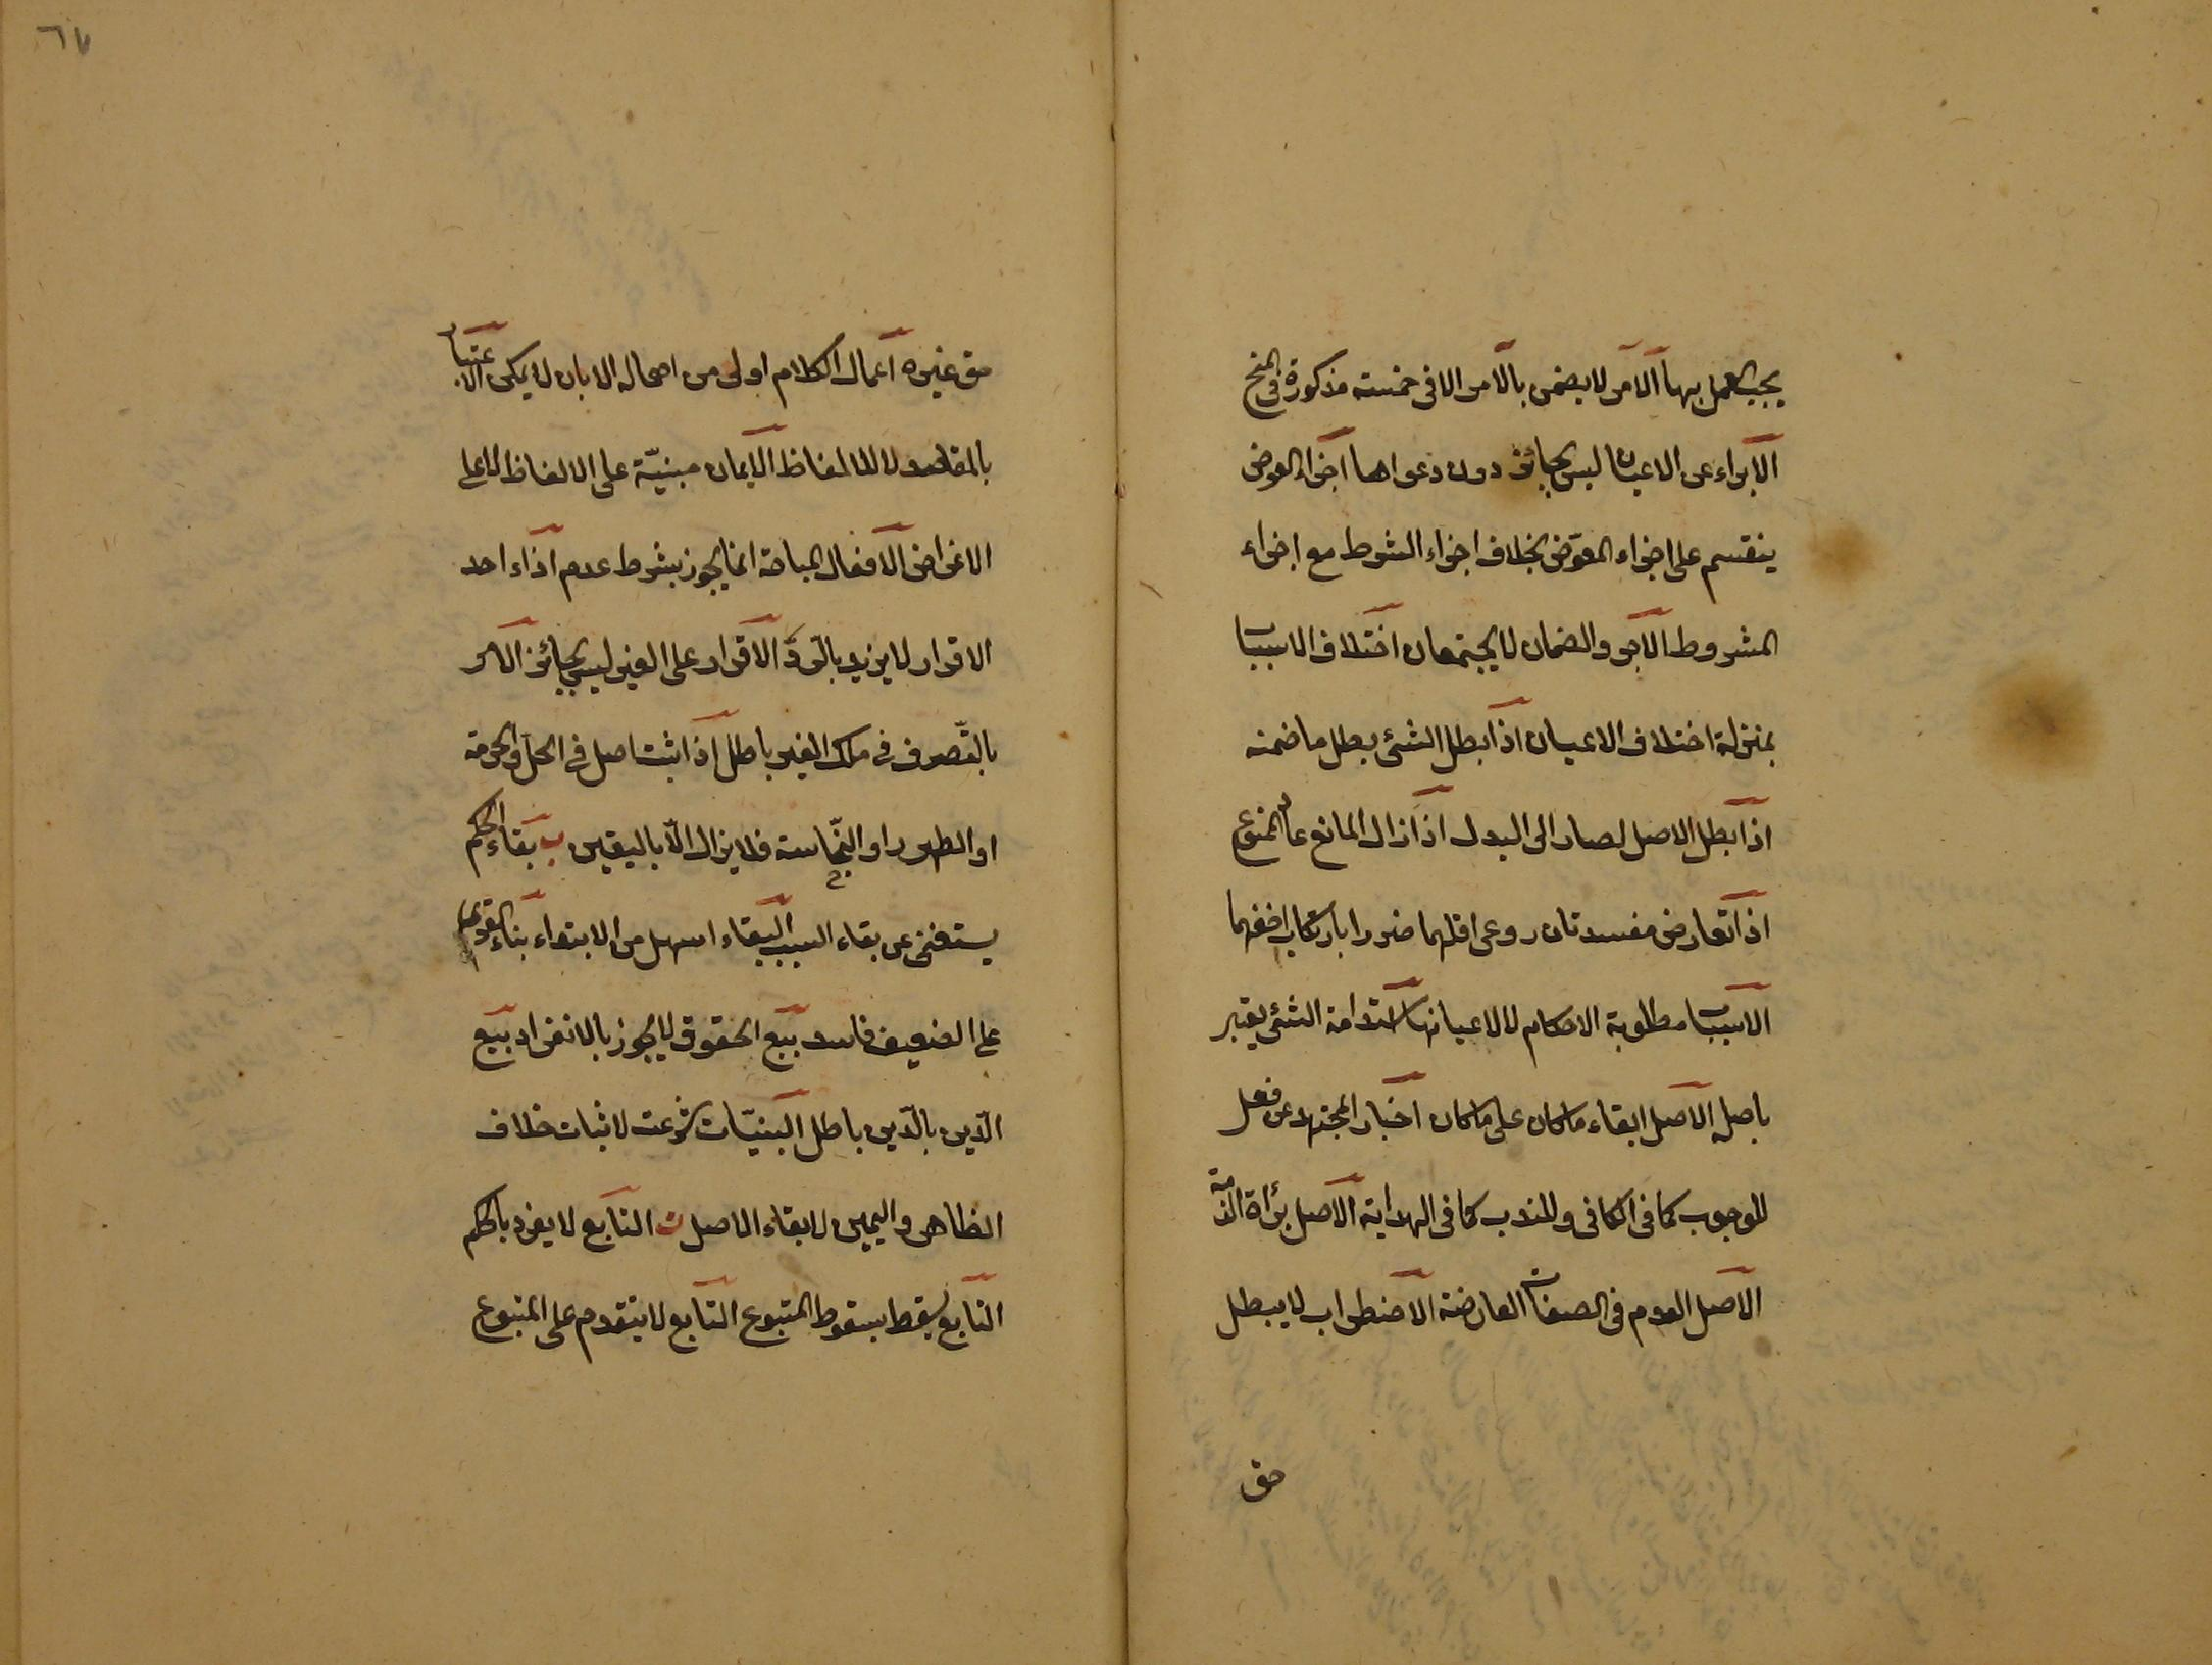 يجب العمل بها الآمر لا يضمن بالأمر الا في خمسة مذكورة في المنح
الابراء عن الاعيان ليس بجائز دون دعواها اجزاء العوض
ينقسم على اجزاء المعوّض بخلاف اجزاء الشرط مع اجزاء
المشروط الاجر والضمان لا يجتمعان اختلاف الاسباب
بمنزلة اختلاف الاعيان اذا بطل الشئ بطل ما ضمنه
اذا بطل الاصل لصار الى البدل اذا زال المانع عاد الممنوع
اذا تعارض مفسدتان روعى اقلهما ضررا بارتكاب اخفهما
الاسباب مطلوبة الاحكام لا لاعيانها استدامة الشئ يعتبر
باصله الاصل ابقاء ما كان على ما كان اخبار المجتهد عن فعل
للوجوب كما فى الكافى وللندب كما فى الهداية الاصل براءة الذمة
الاصل العدم فى الصفات العارضة الاضطراب لا يبطل
حق
٦٧
حق غيره اعمال الكلام اولى من اهماله الا بان لا يمكن الاعتبار
بالمقاصد لا للالفاظ الايمان مبنيّة على الالفاظ لا على
الاغراض الافعال المباحة انما يجوز بشرط عدم اذاء احد
الاقرار لا يزيد بالردّ الاقرار على الغير ليس بجائز الامر
بالتّصرف فى ملك الغير باطل اذا ثبت اصل فى الحل والحرمة
او الطهور او النّجاسة فلا يزال الّا باليقين ب بقاء الحكم
يستغنى عن بقاء السبب البقاء اسهل من الابتداء بناء القوى
على الضعيف فاسد بيع الحقوق لا يجوز بالانفراد بيع
الدّين بالدّين باطل البيّنات شرعت لاثبات خلاف
الظاهر واليمين لابقاء الاصل ت التابع لا يفرد بالحكم
التابع يسقط بسقوط المتبوع التابع لا يتقدم على المتبوع